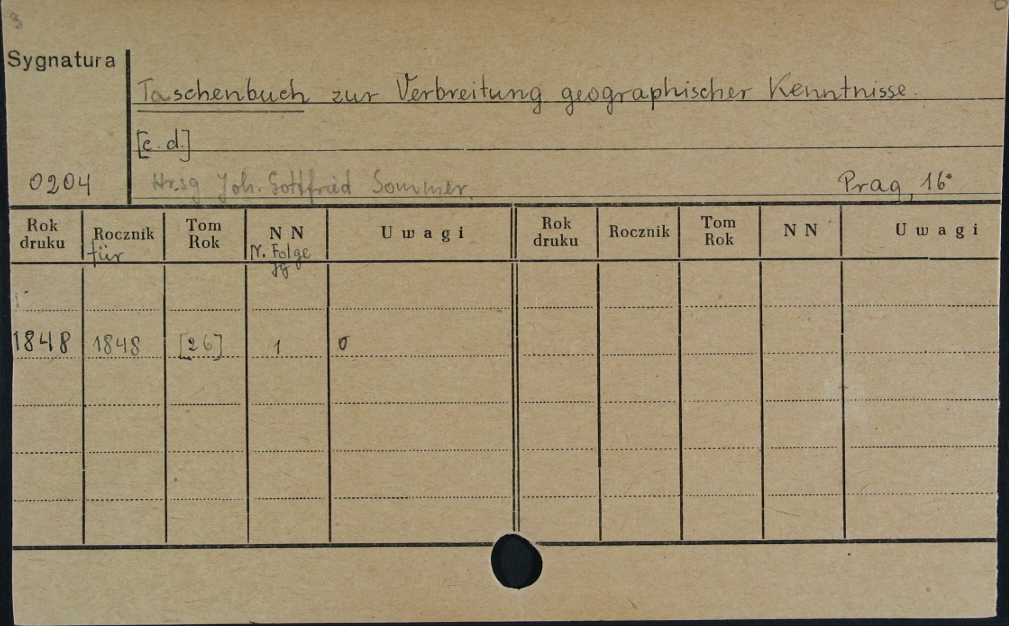 3
Sygnatura
Taschenbuch zur Verbreitung geographischer Kenntnisse.
[c. d.]
0204 Hrsg Joh. Gottfried Sommer. Prag, 16°
Rok druku Rocznik Tom Rok N N Uwagi Rok druku Rocznik Tom Rok N N Uwagi
für N. Folge
Jg
1848 1848 [26] 1 0